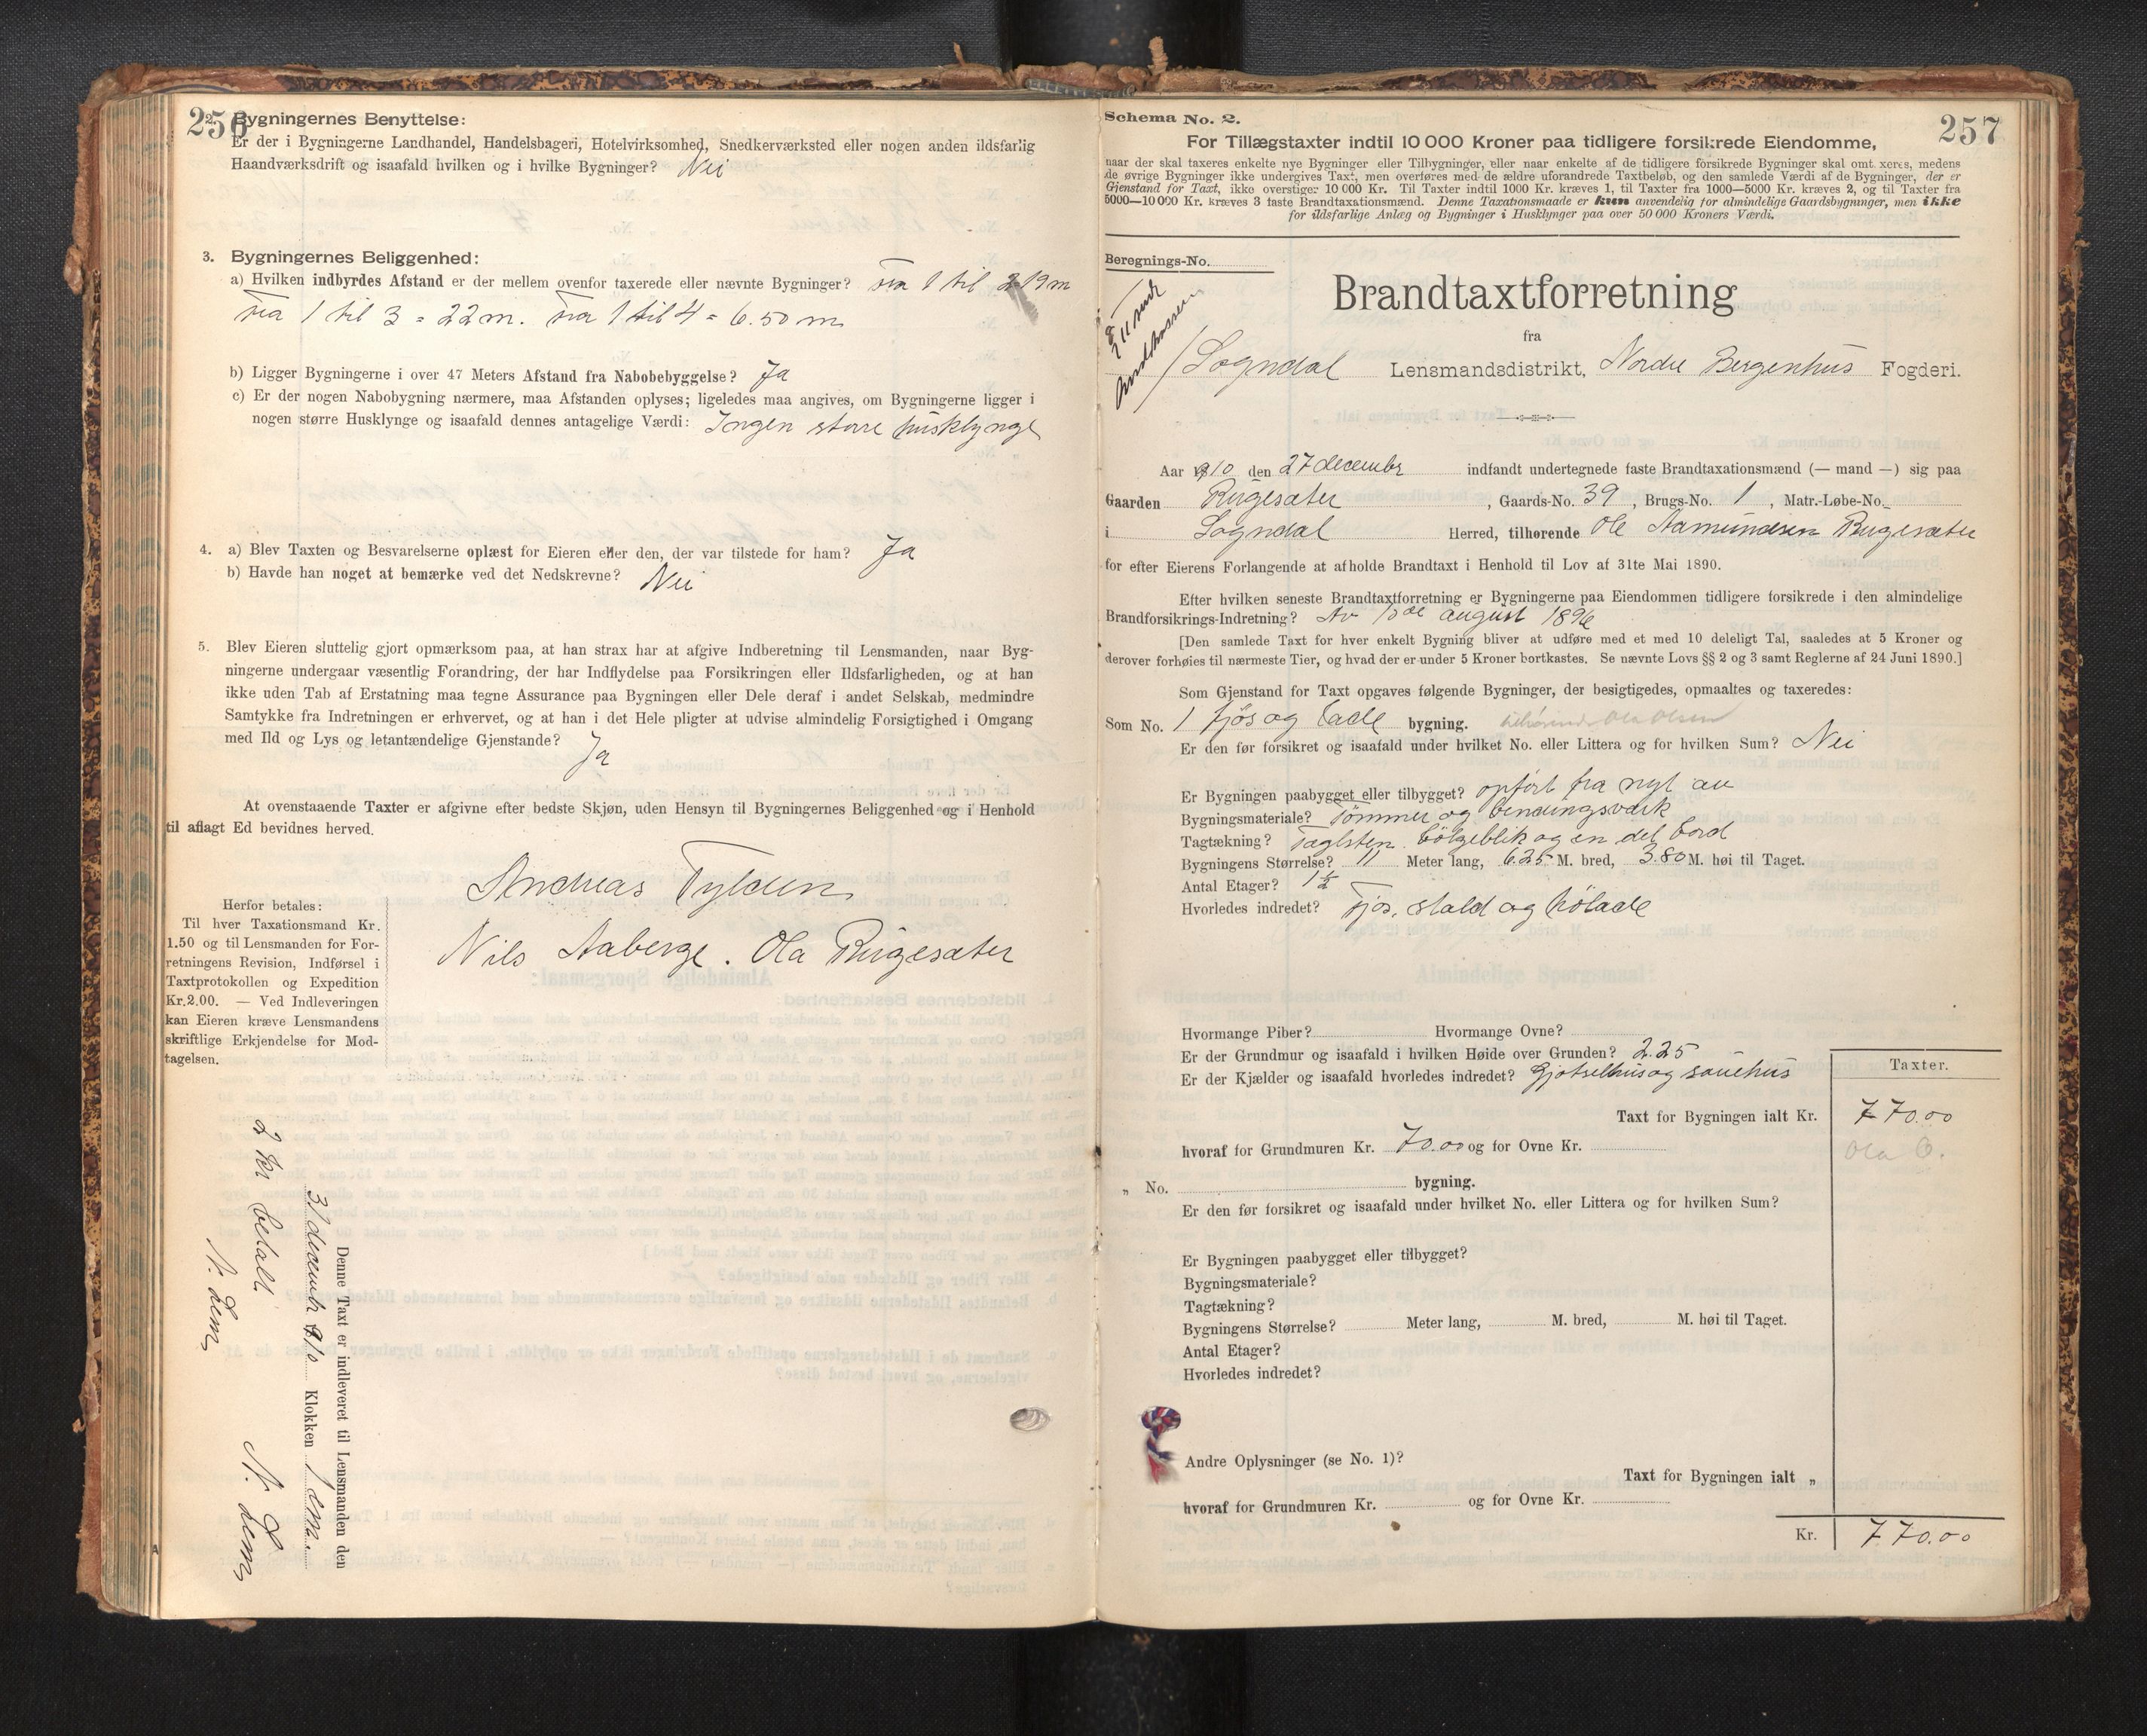 256
Bygningernes Benyttelse:
Er der i Bygningerne Landhandel, Handelsbageri, Hotelvirksomhed, Snedkerværksted eller nogen anden ildsfarlig
Haandværksdrift og isaafald hvilken og i hvilke Bygninger? Nei
3. Bygningernes Beliggenhed:
a) Hvilken indbyrdes Afstand er der mellem ovenfor taxerede eller nævnte Bygninger? Fra 1 til 2 19 m
Fra 1 til 3 = 22 m. Fra 1 til 4 = 6.50 m
b) Ligger Bygningerne i over 47 Meters Afstand fra Nabobebyggelse? Ja
c) Er der nogen Nabobygning nærmere, maa Afstanden oplyses; ligeledes maa angives, om Bygningerne ligger i
nogen større Husklynge og isaafald dennes antagelige Værdi: Ingen større husklynge
4. a) Blev Taxten og Besvarelserne oplæst for Eieren eller den, der var tilstede for ham? Ja
b) Havde han noget at bemærke ved det Nedskrevne? Nei
5. Blev Eieren sluttelig gjort opmærksom paa, at han strax har at afgive Indberetning til Lensmanden, naar Byg-
ningerne undergaar væsentlig Forandring, der har Indflydelse paa Forsikringen eller Ildsfarligheden, og at han
ikke uden Tab af Erstatning maa tegne Assurance paa Bygningen eller Dele deraf i andet Selskab, medmindre
Samtykke fra Indretningen er erhvervet, og at han i det Hele pligter at udvise almindelig Forsigtighed i Omgang
med Ild og Lys og letantændelige Gjenstande? Ja
At ovenstaaende Taxter er afgivne efter bedste Skjøn, uden Hensyn til Bygningernes Beliggenhed og i Henhold
til aflagt Ed bevidnes herved.
Andreas Tylden
Nils Aaberge. Ola Rugesæter
Herfor betales:
Til hver Taxationsmand Kr.
1.50 og til Lensmanden for For-
retningens Revision, Indførsel i
Taxtprotokollen og Expedition
Kr. 2.00. — Ved Indleveringen
kan Eieren kræve Lensmandens
skriftlige Erkjendelse for Mod-
tagelsen.
Denne Taxt er indleveret til Lensmanden den
31 decembr 910 Klokken 1 em.
N. Lem
2 kr betalt
N. Lem
257
Schema No. 2.
For Tillægstaxter indtil 10 000 Kroner paa tidligere forsikrede Eiendomme,
naar der skal taxeres enkelte nye Bygninger eller Tilbygninger, eller naar enkelte af de tidligere forsikrede Bygninger skal omt xeres, medens
de øvrige Bygninger ikke undergives Taxt, men overføres med de ældre uforandrede Taxtbeløb, og den samlede Værdi af de Bygninger, der er
Gjenstand for Taxt, ikke overstiger 10 000 Kr. Til Taxter indtil 1000 Kr. kræves 1, til Taxter fra 1000—5000 Kr. kræves 2, og til Taxter fra
5000—10 000 Kr. kræves 3 faste Brandtaxationsmænd. Denne Taxationsmaade er kun anvendelig for almindelige Gaardsbygninger, men ikke
for ildsfarlige Anlæg og Bygninger i Husklynger paa over 50 000 Kroners Værdi.
Beregnings-No.
Brandtaxtforretning
fra
Sogndal Lensmandsdistrikt, Nordre Bergenhus Fogderi.
Aar 910 den 27 decembr indfandt undertegnede faste Brandtaxationsmænd (— mand —) sig paa
Gaarden Rugesæter, Gaards-No. 39, Brugs-No. 1, Matr.-Løbe-No.
i Sogndal Herred, tilhørende Ole Aamundsen Rugesæter
for efter Eierens Forlangende at afholde Brandtaxt i Henhold til Lov af 31te Mai 1890.
Efter hvilken seneste Brandtaxtforretning er Bygningerne paa Eiendommen tidligere forsikrede i den almindelige
Brandforsikrings-Indretning? Av 10de august 1896
[Den samlede Taxt for hver enkelt Bygning bliver at udføre med et med 10 deleligt Tal, saaledes at 5 Kroner og
derover forhøies til nærmeste Tier, og hvad der er under 5 Kroner bortkastes. Se nævnte Lovs §§ 2 og 3 samt Reglerne af 24 Juni 1890.]
Som Gjenstand for Taxt opgaves følgende Bygninger, der besigtigedes, opmaaltes og taxeredes:
Som No. 1 fjøs og lade bygning. tilhørende Ola Olsen
Er den før forsikret og isaafald under hvilket No. eller Littera og for hvilken Sum? Nei
Er Bygningen paabygget eller tilbygget? opført fra nyt au
Bygningsmateriale? Tømmer og bindingsværk
Tagtækning? Taglsten. bølgeblik og en del bord
Bygningens Størrelse? 11 Meter lang, 6.25 M. bred, 3.80 M. høi til Taget.
Antal Etager? 1½
Hvorledes indredet? Fjøs, stald og hølade
Hvormange Piber? Hvormange Ovne?
Er der Grundmur og isaafald i hvilken Høide over Grunden? 2.25
Er der Kjælder og isaafald hvorledes indredet? Gjødselhus og sauehus
Taxter.
Taxt for Bygningen ialt Kr. 770.00
hvoraf for Grundmuren Kr. 70.00 og for Ovne Kr.
Ola O.
„ No. bygning.
Er den før forsikret og isaafald under hvilket No. eller Littera og for hvilken Sum?
Er Bygningen paabygget eller tilbygget?
Bygningsmateriale?
Tagtækning?
Bygningens Størrelse? Meter lang, M. bred, M. høi til Taget.
Antal Etager?
Hvorledes indredet?
Andre Oplysninger (se No. 1)?
Taxt for Bygningen ialt „
hvoraf for Grundmuren Kr. og for Ovne Kr.
Kr. 770.00